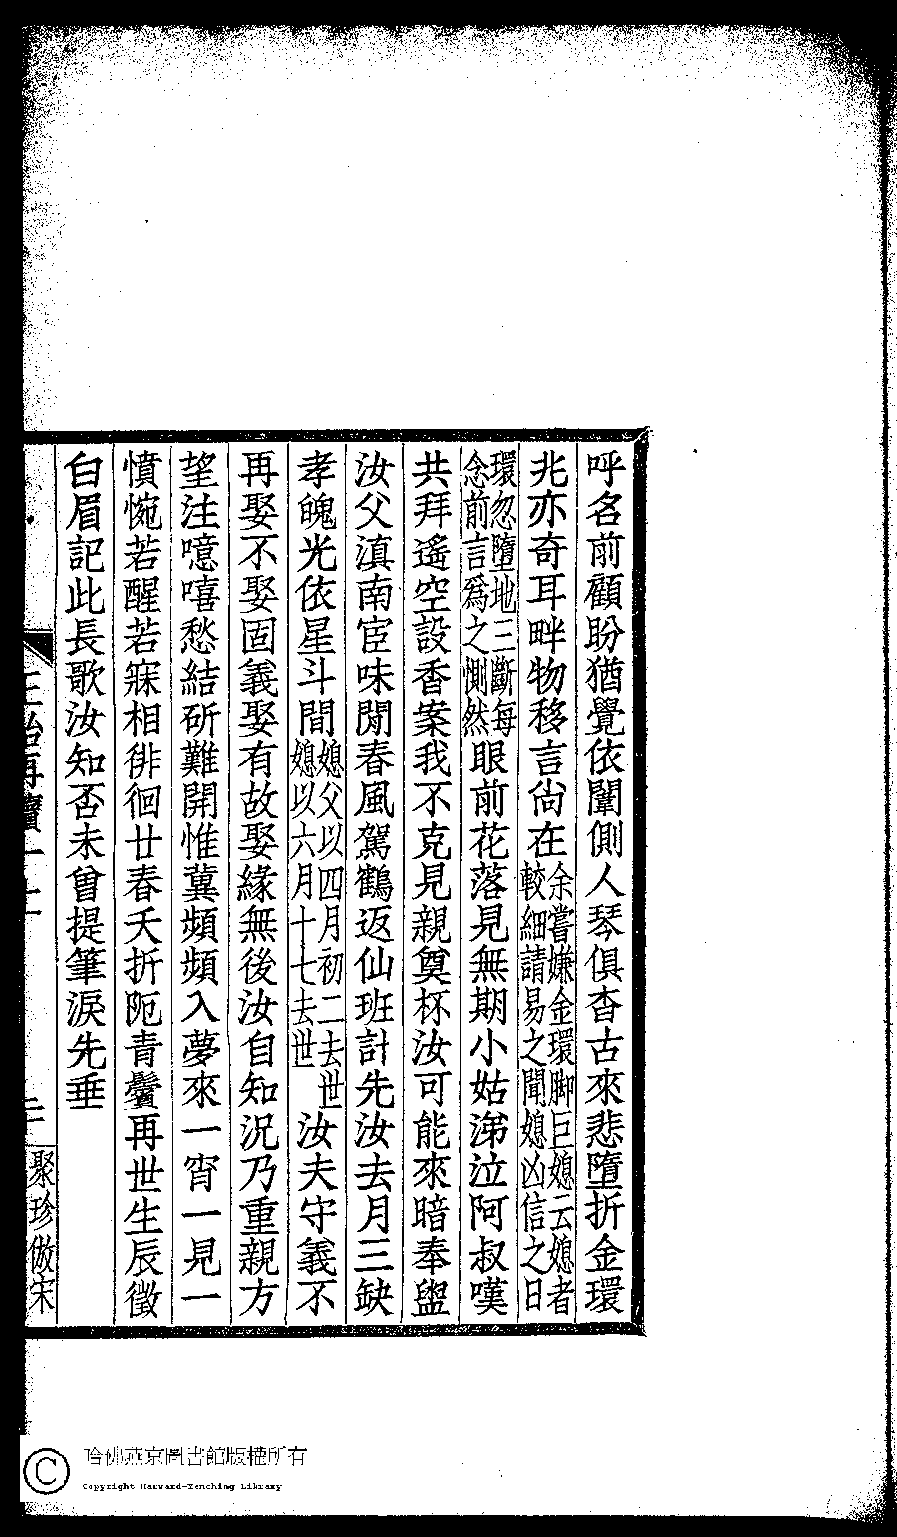 呼名前顧盼猶覺依闈側人琴俱杳古來悲墮折金環
兆亦奇耳畔物移言尙在余嘗嫌金環脚巨媳云媳者較細請易之聞媳凶信之日
環忽墮地三斷每念前言爲之惻然眼前花落見無期小姑涕泣阿叔嘆
共拜遙空設香案我不克見親奠杯汝可能來暗奉盥
汝父滇南宦味閒春風駕鶴返仙班計先汝去月三缺
孝魄光依星斗間媳父以四月初二去世媳以六月十七去世汝夫守義不
再娶不娶固義娶有故娶緣無後汝自知況乃重親方
望注噫嘻愁結斫難開惟冀頻頻入夢來一宵一見一
憤惋若醒若寐相徘徊廿春夭折阨青鬢再世生辰徵
白眉記此長歌汝知否未曾提筆淚先垂
聚珍倣宋
哈佛燕京圖書館版權所有
Copyright Harvard-Yenching Library